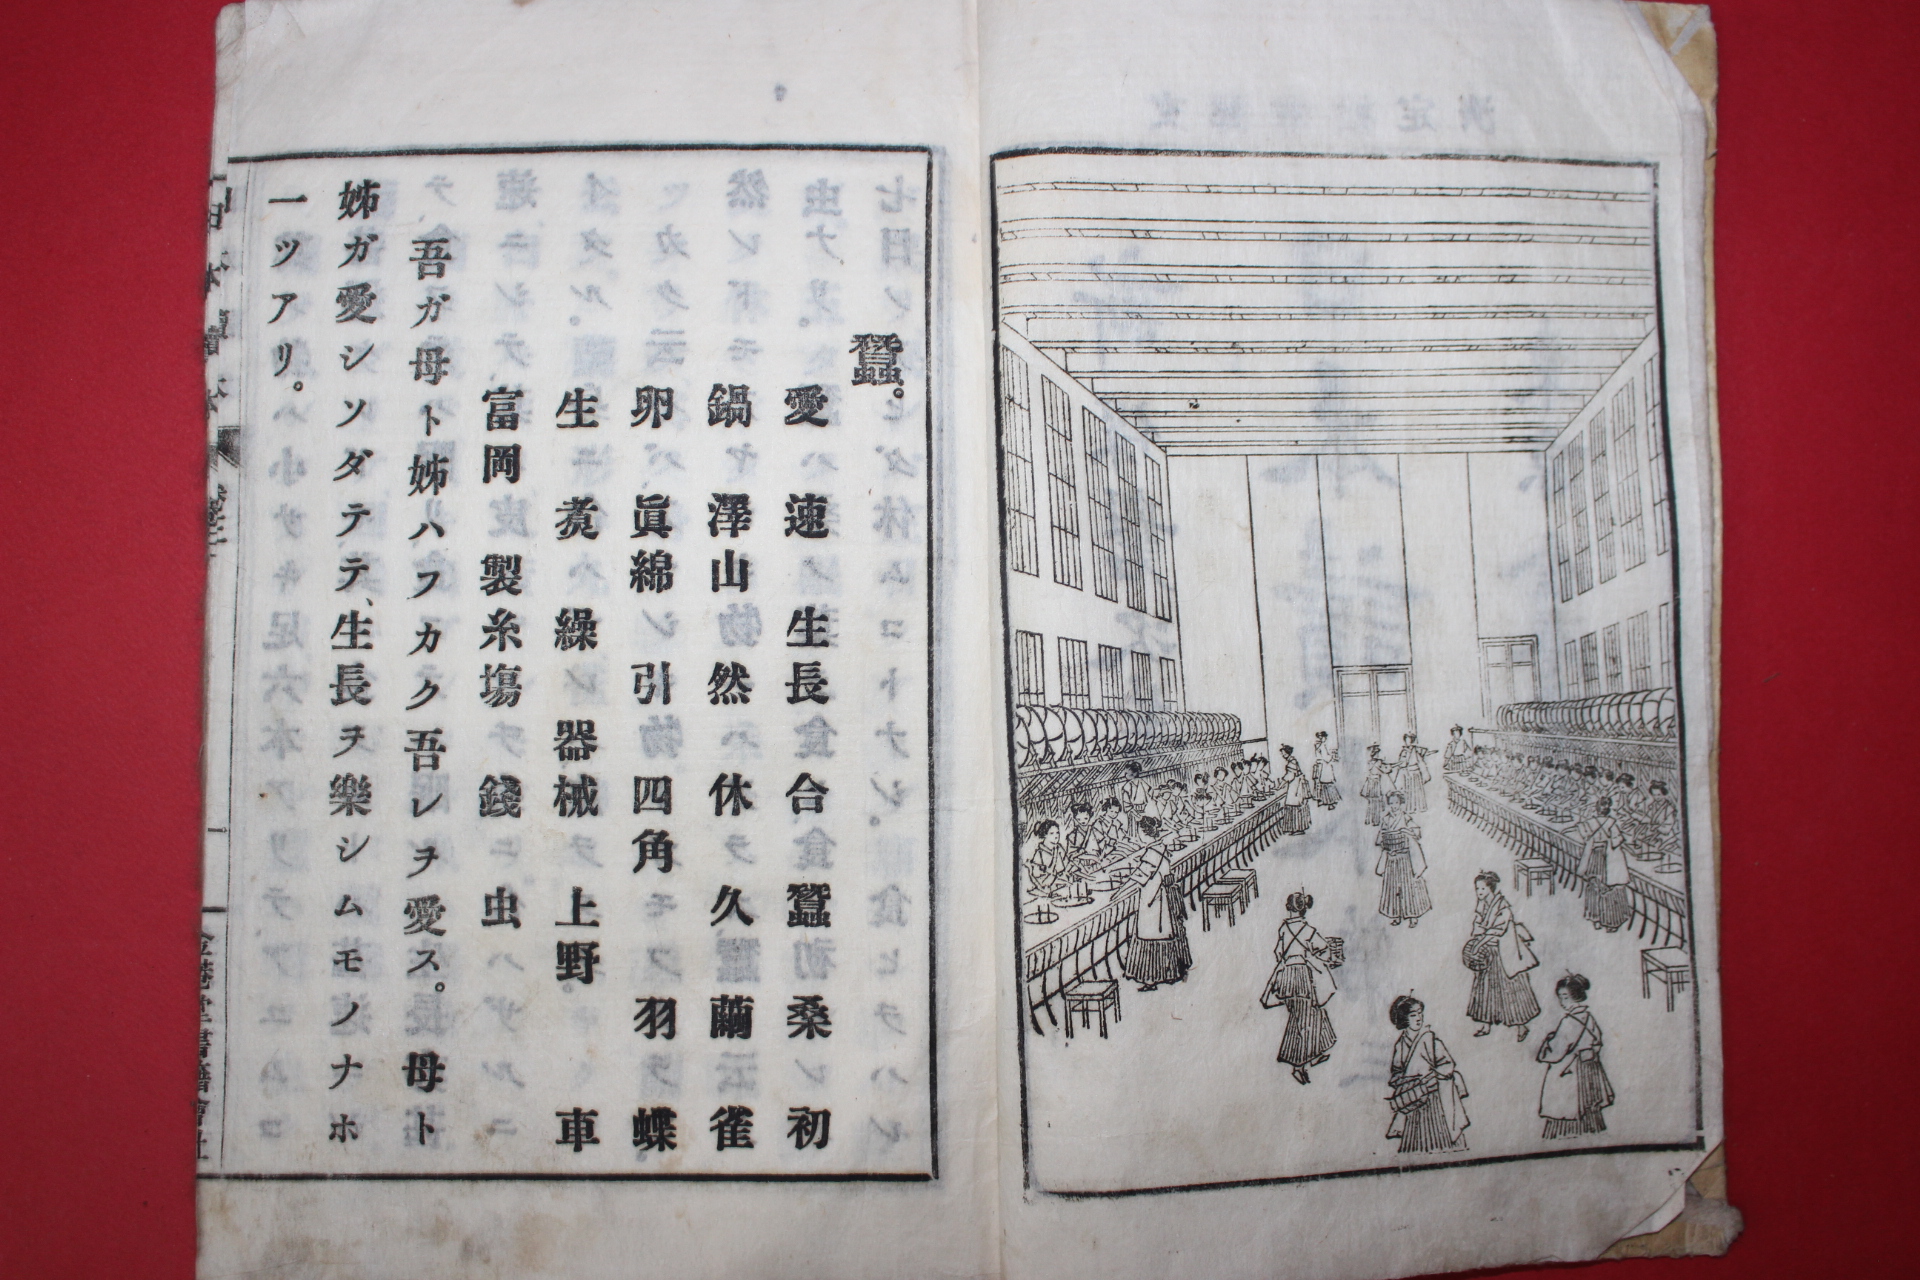 蠶。
愛 速 生長 合 蠶 桑 初
鍋 澤山 然 休 久 繭 雀
卵 眞綿 引 四角 羽 蝶
生 煑 繰 器械 上野 車
富岡 製糸塲 錢 虫
吾ガ母ト姊ハフカク吾レヲ愛ス。母ト
姊ガ愛シソダテテ、生長ヲ樂シムモノナホ
一ツアリ。